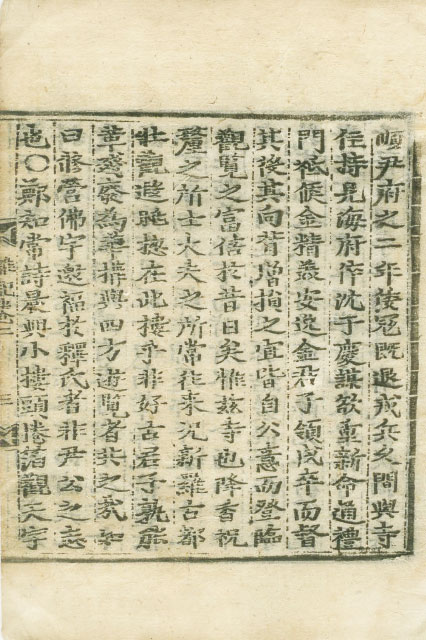 順尹府之二年後冠既退戎兵之間與寺
住持見海府倅沈于慶謀欲重新命通禮
門祗候金精義安逸金君子領戍卒而督
其後其向背增損之宜皆自公意而登臨
觀覽之富倍於昔日矣惟玆寺也降香祝
釐之所士大夫之所常往来况新羅古都
壯觀遊眺摠在此樓乎非好古君子孰能
革弊廢為華搆與四方遊覽者共之哉如
曰修營佛宇邀福於釋氏者非尹公之志
也○鄭知常詩晨興小樓頭捲箔觀天宇